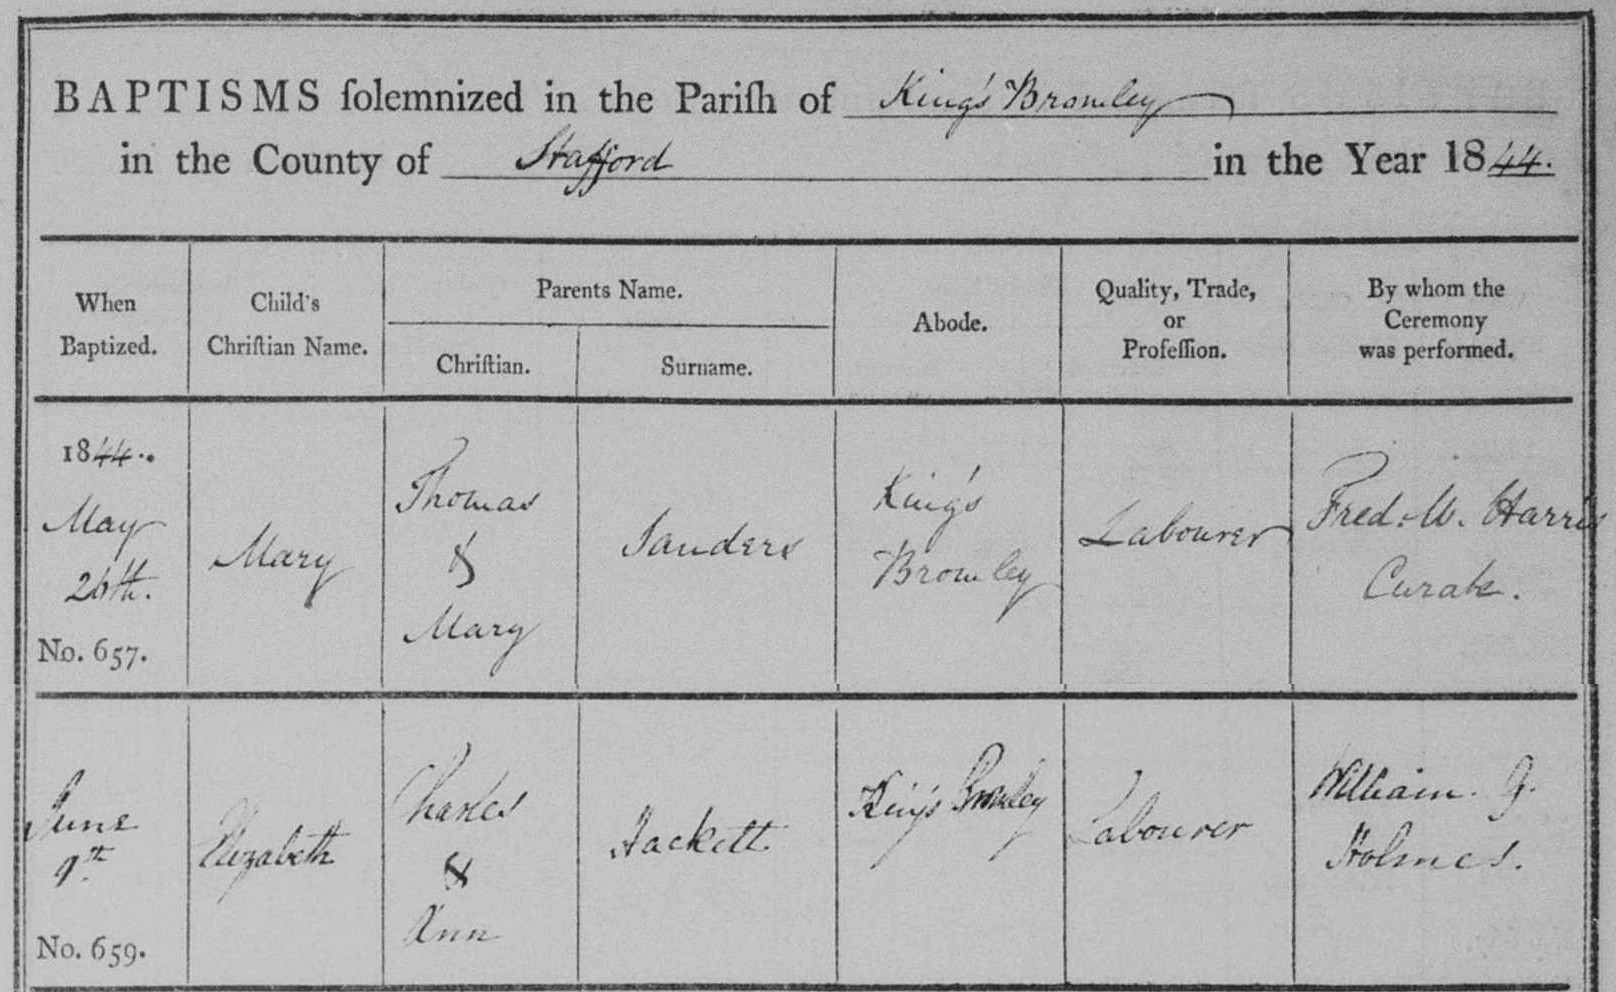 BAPTISMS ſolemnized in the Pariſh of King's Bromley
in the County of Stafford in the Year 1844.
When
Baptized.
Child's
Chriſtian Name.
Parents Name.
Chriſtian.
Surname.
Abode.
Quality, Trade,
or
Profeſſion.
By whom the
Ceremony
was performed.
1844.
May
26th.
No. 657.
Mary
Thomas
&
Mary
Sanders
King's
Bromley
Labourer
Fred. W. Harris
Curate.
June
9th
No. 659.
Elizabeth
Charles
&
Ann
Hackett
King's Bromley
Labourer
William. G.
Holmes.